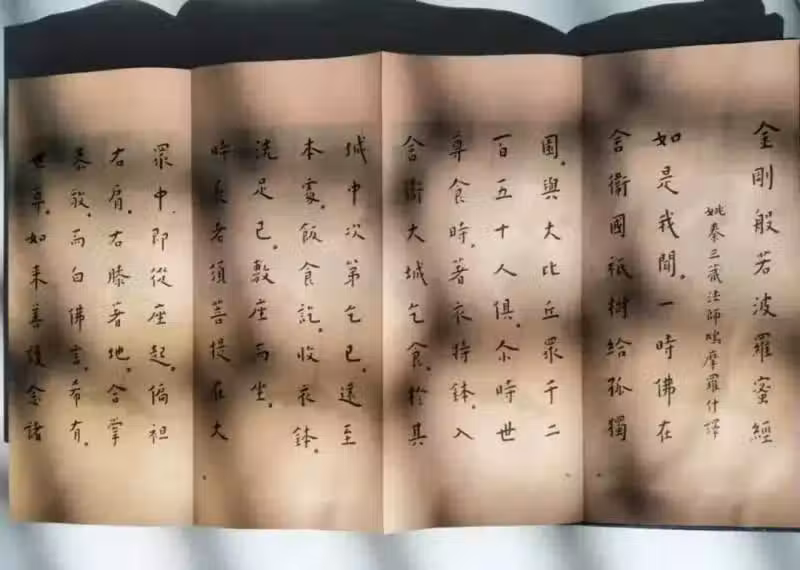 金剛般若波羅蜜經
姚秦三藏法師鳩摩羅什譯
如是我聞。一時佛在
舍衛國祇樹給孤獨
園。與大比丘眾千二
百五十人俱。尒時世
尊食時。著衣持鉢。入
舍衛大城乞食。於其
城中次第乞已。還至
本處。飯食訖。收衣鉢。
洗足已。敷座而坐。
時長老須菩提在大
眾中。即從座起。偏袒
右肩。右膝著地。合掌
恭敬。而白佛言。希有。
世尊。如来善護念諸